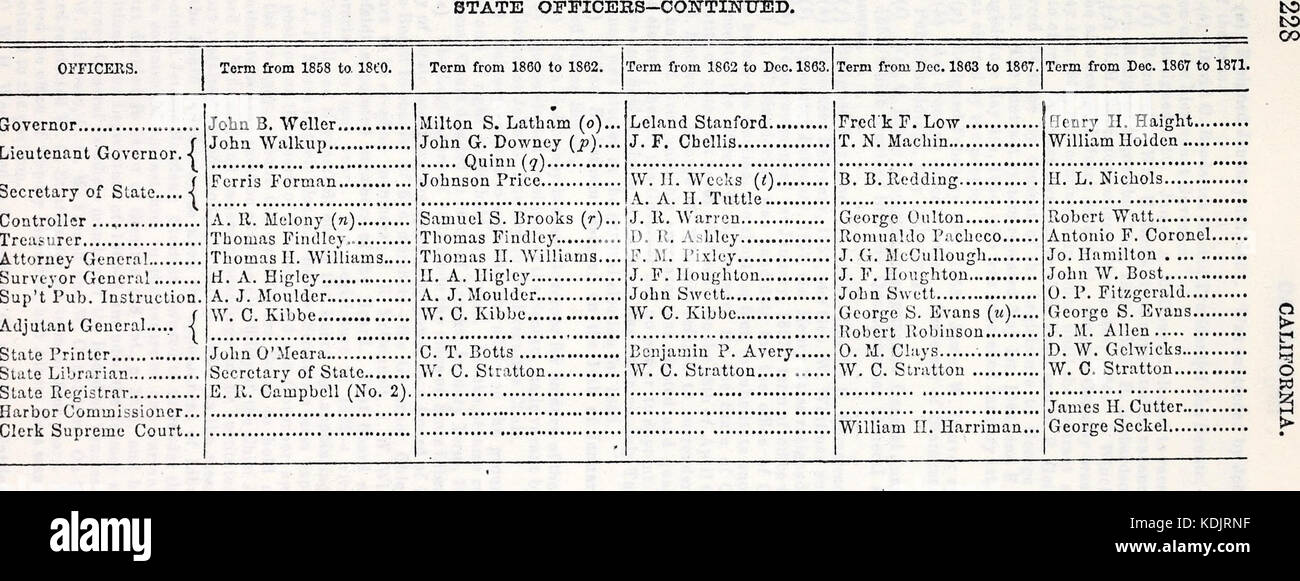 STATE OFFICERS—CONTINUED.
228
OFFICERS. Term from 1858 to 1860. Term from 1860 to 1862. Term from 1862 to Dec. 1863. Term from Dec. 1863 to 1867. Term from Dec. 1867 to 1871.
Governor John B. Weller Milton S. Latham (o) Leland Stanford Fred'k F. Low Henry H. Haight
Lieutenant Governor. { John Walkup John G. Downey (p) J. F. Chellis T. N. Machin William Holden
Quinn (q)
Secretary of State { Ferris Forman Johnson Price W. H. Weeks (t) B. B. Redding H. L. Nichols
A. A. H. Tuttle
Controller A. R. Melony (n) Samuel S. Brooks (r) J. R. Warren George Oulton Robert Watt
Treasurer Thomas Findley Thomas Findley D. R. Ashley Romualdo Pacheco Antonio F. Coronel
Attorney General Thomas H. Williams Thomas H. Williams F. M. Pixley J. G. McCullough Jo. Hamilton
Surveyor General H. A. Higley H. A. Higley J. F. Houghton J. F. Houghton John W. Bost
Sup't Pub. Instruction. A. J. Moulder A. J. Moulder John Swett John Swett O. P. Fitzgerald
Adjutant General { W. C. Kibbe W. C. Kibbe W. C. Kibbe George S. Evans (u) George S. Evans
Robert Robinson J. M. Allen
State Printer John O'Meara C. T. Botts Benjamin P. Avery O. M. Clays D. W. Gelwicks
State Librarian Secretary of State W. C. Stratton W. C. Stratton W. C. Stratton W. C. Stratton
State Registrar E. R. Campbell (No. 2).
Harbor Commissioner James H. Cutter
Clerk Supreme Court William H. Harriman George Seckel
CALIFORNIA.
alamy
Image ID: KDJRNF
www.alamy.com